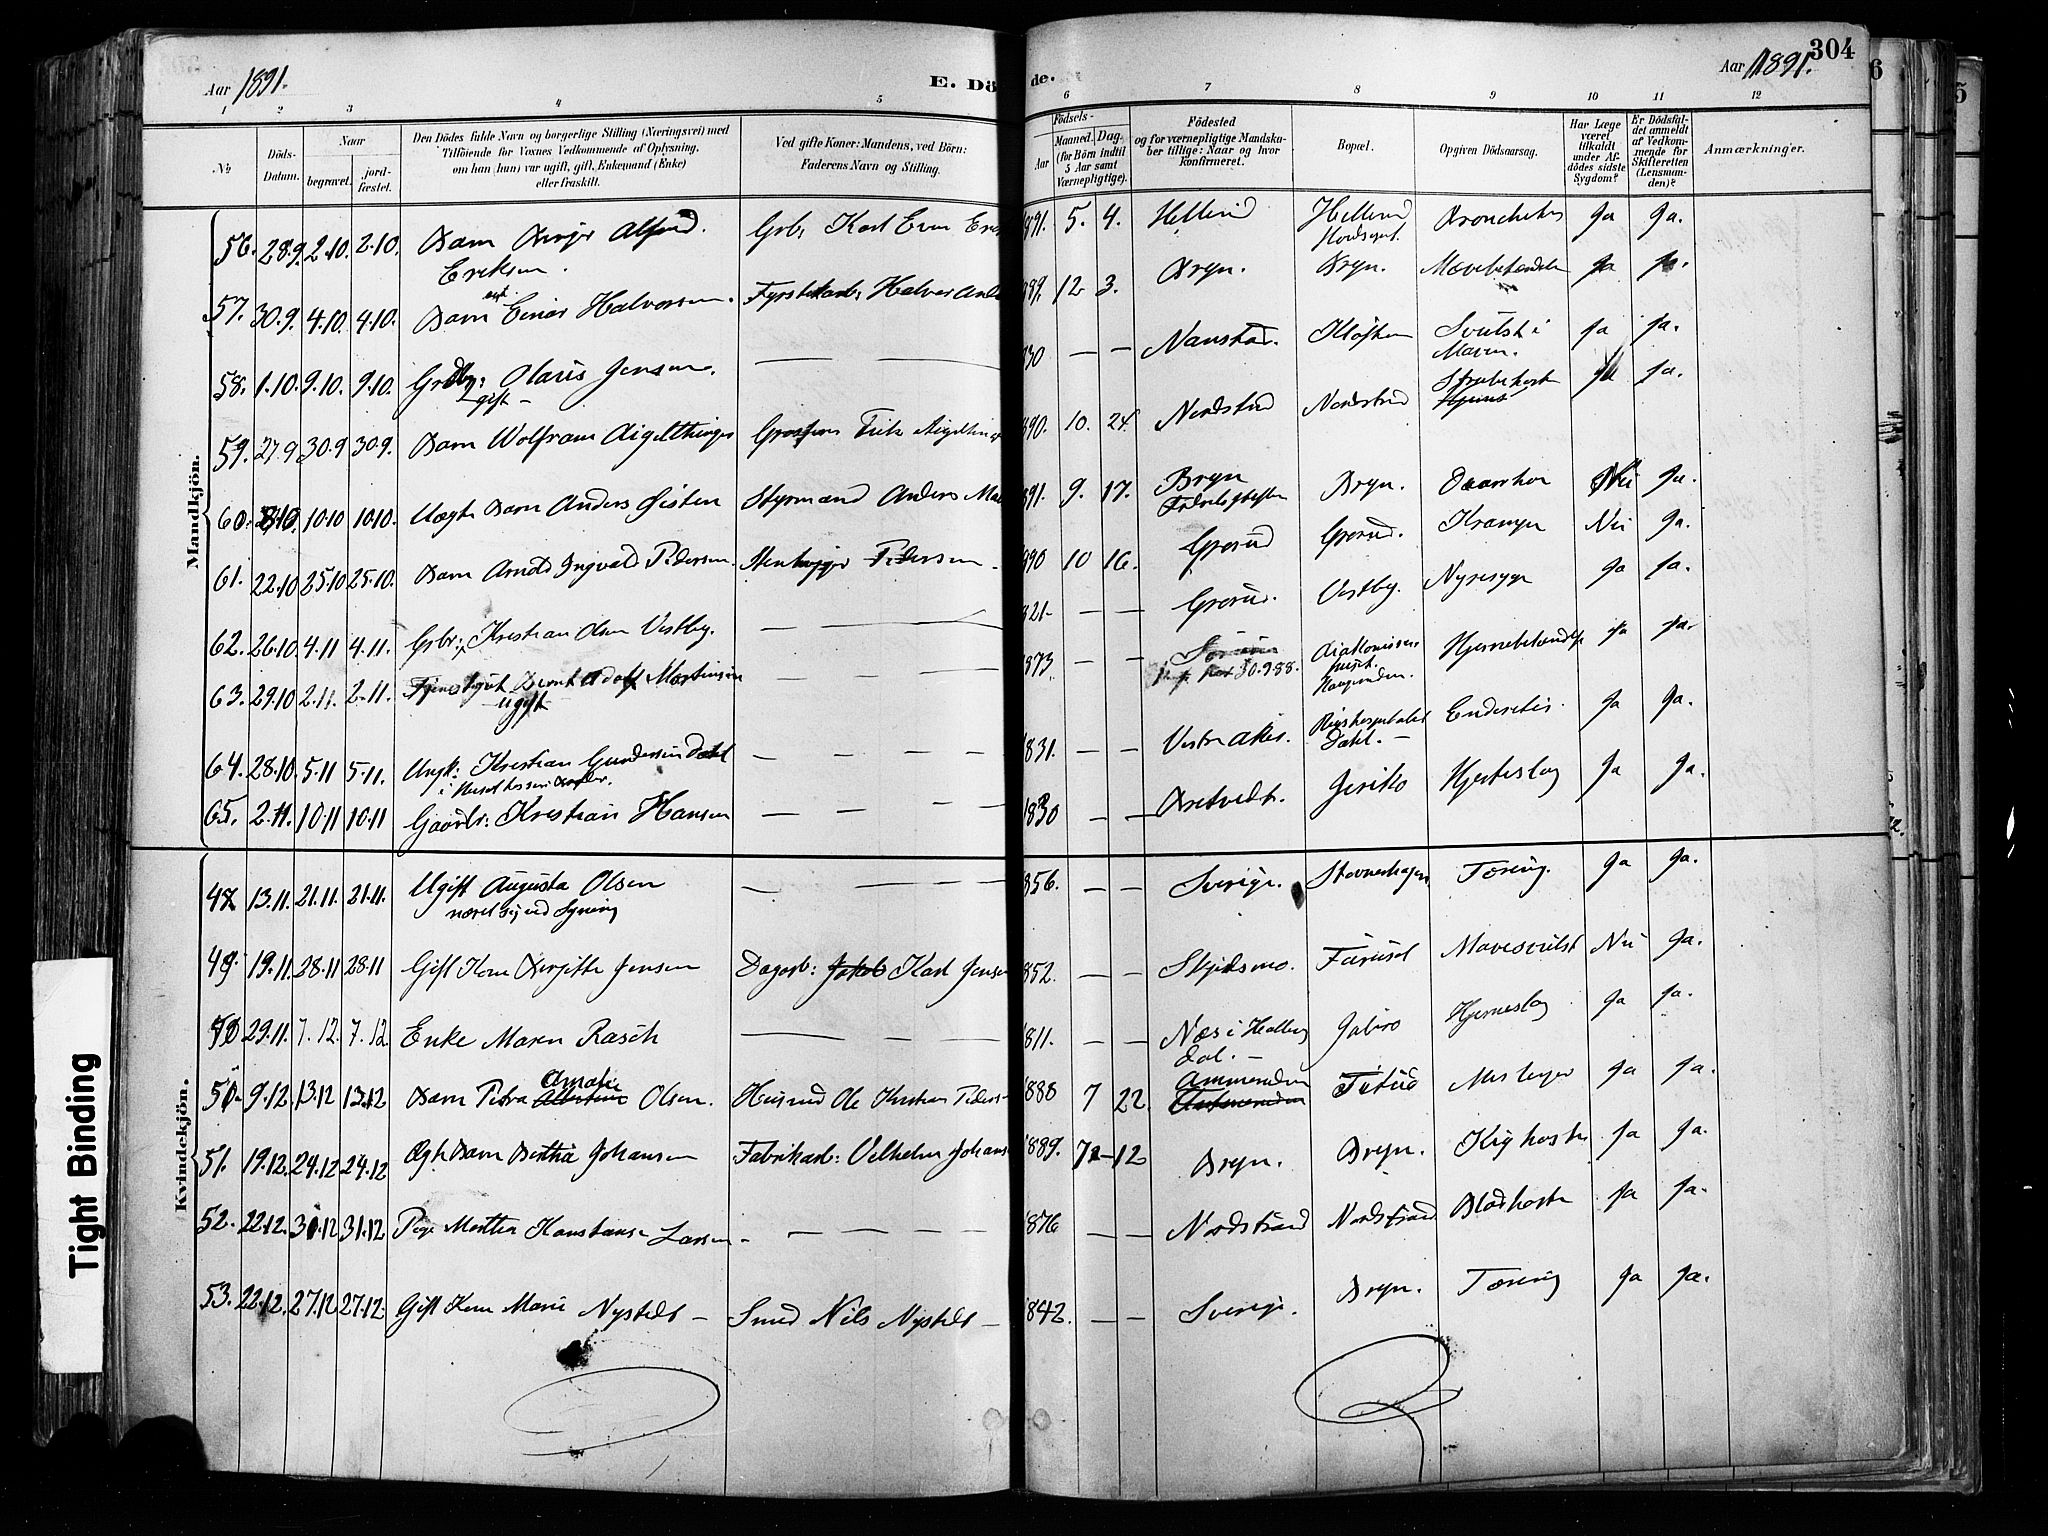 Aar 1891. E. Dö
de. Aar 1891. 304
1 2 3 4 5 6 7 8 9 10 11 12
№ Döds-Datum. Naar begravet. jord-fæstet. Den Dödes fulde Navn og borgerlige Stilling (Næringsvei) med Tilföiende for Voxnes Vedkommende af Oplysning, om han (hun) var ugift, gift, Enkemand (Enke) eller fraskilt. Ved gifte Koner: Mandens, ved Börn: Faderens Navn og Stilling. Födsels- Aar Maaned. Dag. (for Börn indtil 5 Aar samt Værnepligtige). Födested og for værnepligtige Mandskaber tillige: Naar og hvor Konfirmeret. Bopæl. Opgiven Dödsaarsag. Har Læge været tilkaldt under Afdödes sidste Sygdom? Er Dödsfaldet anmeldt af Vedkommende for Skifteretten (Lensmanden)? Anmærkninger.
Mandkjön.
56. 28.9. 2.10. 2.10. Barn Birger Alfred Eriksen. Gbr. Karl Even 891. 5. 4. Hellerud Hellerud Bronchitis Ja Ja.
57. 30.9. 4.10. 4.10. Barn Einar Halvorsen. Halvor 889. 12 3. Bryn. Bryn. Mavebetændelse Ja Ja.
58. 1.10. 9.10. 9.10. Olaus Jensen. gift — — — — 830 — — Nanstad. Kløften Svulst i Maven. Ja Ja.
59. 27.9 30.9 30.9. Barn Wolfram Aigeltinger 890. 10. 24. Nordstrand Nordstrand Strubehoste Ja Ja.
60. 8.10. 10.10 10.10. Uægte Barn Anders Gisten Styrmand Anders 891. 9. 17. Bryn Bryn. Nei Ja.
61. 22.10 25.10 25.10. Barn Arnold Ingvald Pedersen. Stenhugger Pedersen 890 10 16. Grorud Grorud. Krampe Nei Ja.
62. 26.10. 4.11 4.11. Gbr. Kristian Olsen Vestby. — — — — 821. — — Grorud. Vestby. Nyresyge Ja Ja.
63. 29.10 2.11. 2.11. Bernt Adolf Martinsen ugift — — — — 1873 — — 30.9.88. Diakonissen huset. Haugerudn. Hjernebetændelse Ja Ja.
64. 28.10. 5.11 5.11. Ungk: Kristian Gundersen Dahl — — — — 1831. — — Vestre Aker. Rigshospitalet Dahl. — Ja Ja.
65. 2.11. 10.11 10.11 Gaardbr: Kristian Hansen — — — — 1830 — — Bredtvedt. Jeriko Hjerteslag Ja Ja.
Kvindekjön.
47 13.11. 21.11. 21.11. Ugift Augusta Olsen næret sig ved Syning — — — — 856. — — Sverige. Stovnerhagen Tæring. Ja Ja.
49. 19.11. 28.11 28.11 Gift Kone Birgitte Jensen Dagarb: Karl Jensen 852. — — Skjedsmo. Furuset Mavesvulst Nei Ja.
50 29.11. 7.12. 7.12 Enke Maren Rasch — — — 811. — — Næs i Hallingdal. — Jabiro Hjerneslag Ja Ja.
50. 9.12. 13.12 13.12 Barn Petra Amalie Olsen. Husmd Ole Kristian Peders 1888 7 22. Ammerudn Ja Ja.
51. 19.12. 24.12 24.12 Ægte Barn Bertha Johansen Fabrikarb: Vilhelm Johans 1889. 7 12 Bryn. Bryn. Kighoste Ja Ja.
52. 22.12. 31.12 31.12 Pige Martha Konstanse Larsen — — — — 1876 — — Nordstrand Nordstrand Blodhoste Ja Ja.
53. 22.12. 27.12 27.12. Gift Kone Marie Nystedt — Smed Nils Nystedt — 1842. — — Sverige. Bryn. Tæring Ja Ja.
Tight Binding